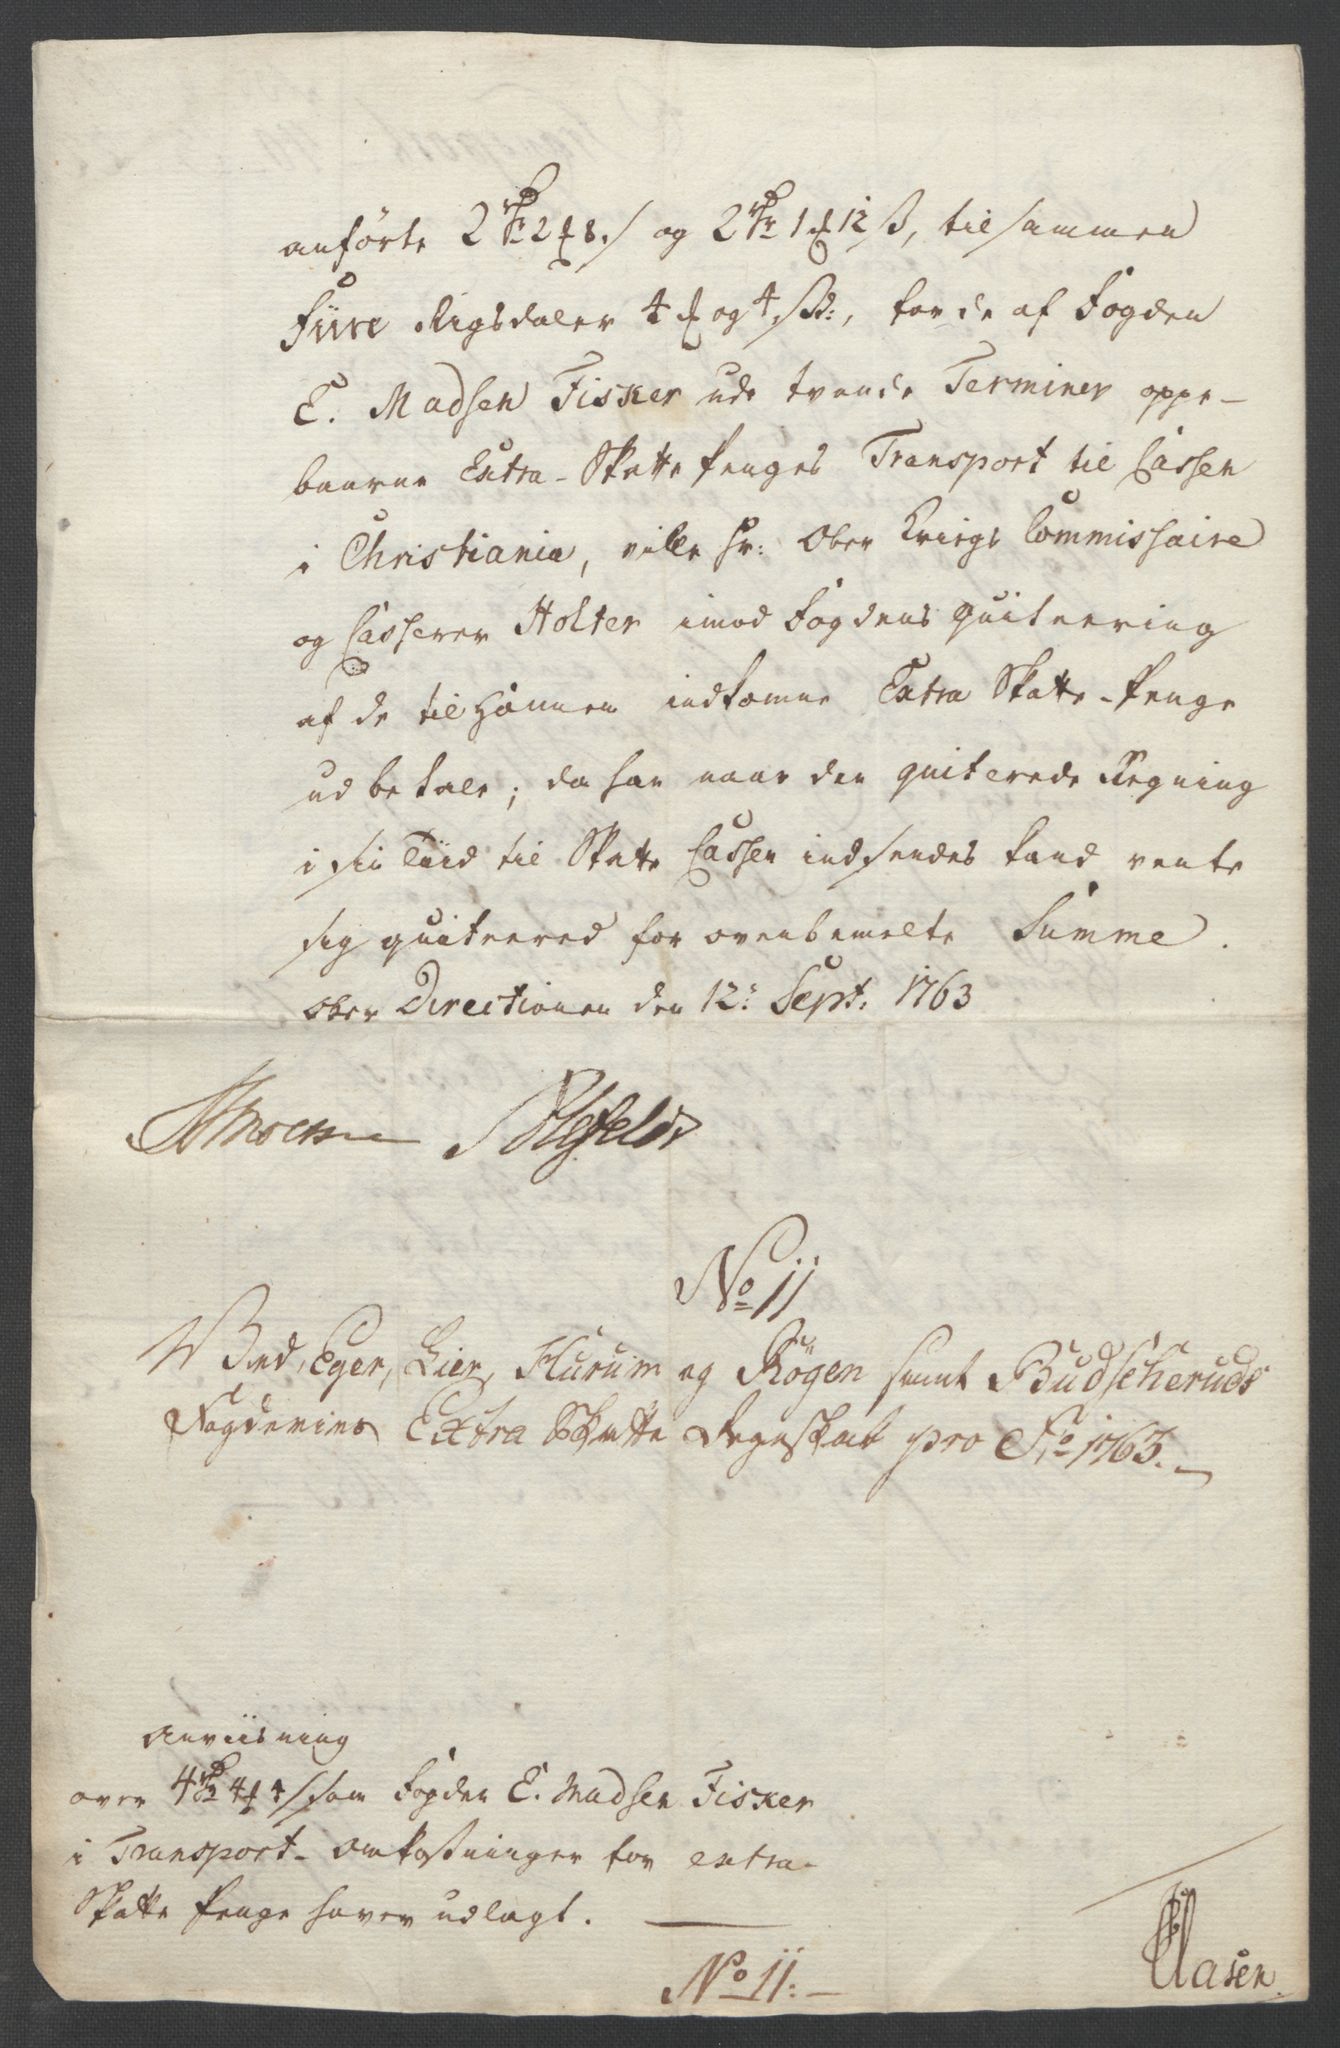 anførte 2 Rdr 2 ₰ 8 s og 2 Rdr 1 ₰ 12 s, tilsammen
Fiire Rigsdaler 4 ₰ og 4 s:, for de af Fogden
E. Madsen Fisker udi tvende Terminer oppe-
baarne Extra-Skatte Penges Transport til Cassen
i Christiania, ville Hr: Ober Krigs Commissaire
og Casserer Holter imod Fogdens quitering
af de til Hannem indkomne Extra Skatte-Penge
udbetale; da han naar den quiterede Regning
i sin Tiid til Skatte Cassen indsendes kand vente
sig quitered for ovenbemelte Summe.
Ober Directionen den 12: Sept: 1763
No 11
Ved Eger, Lier, Hurum og Rögen samt Budscheruds
Fogderies Extra Skatte Regnskab pro Ao 1763.
Anviisning
over 4 Rdr 4 ₰ 4 s som Fogden E. Madsen Fisker
i Transport-Omkostninger for extra-
Skatte Penge haver udlagt.
Aasen
No 11: